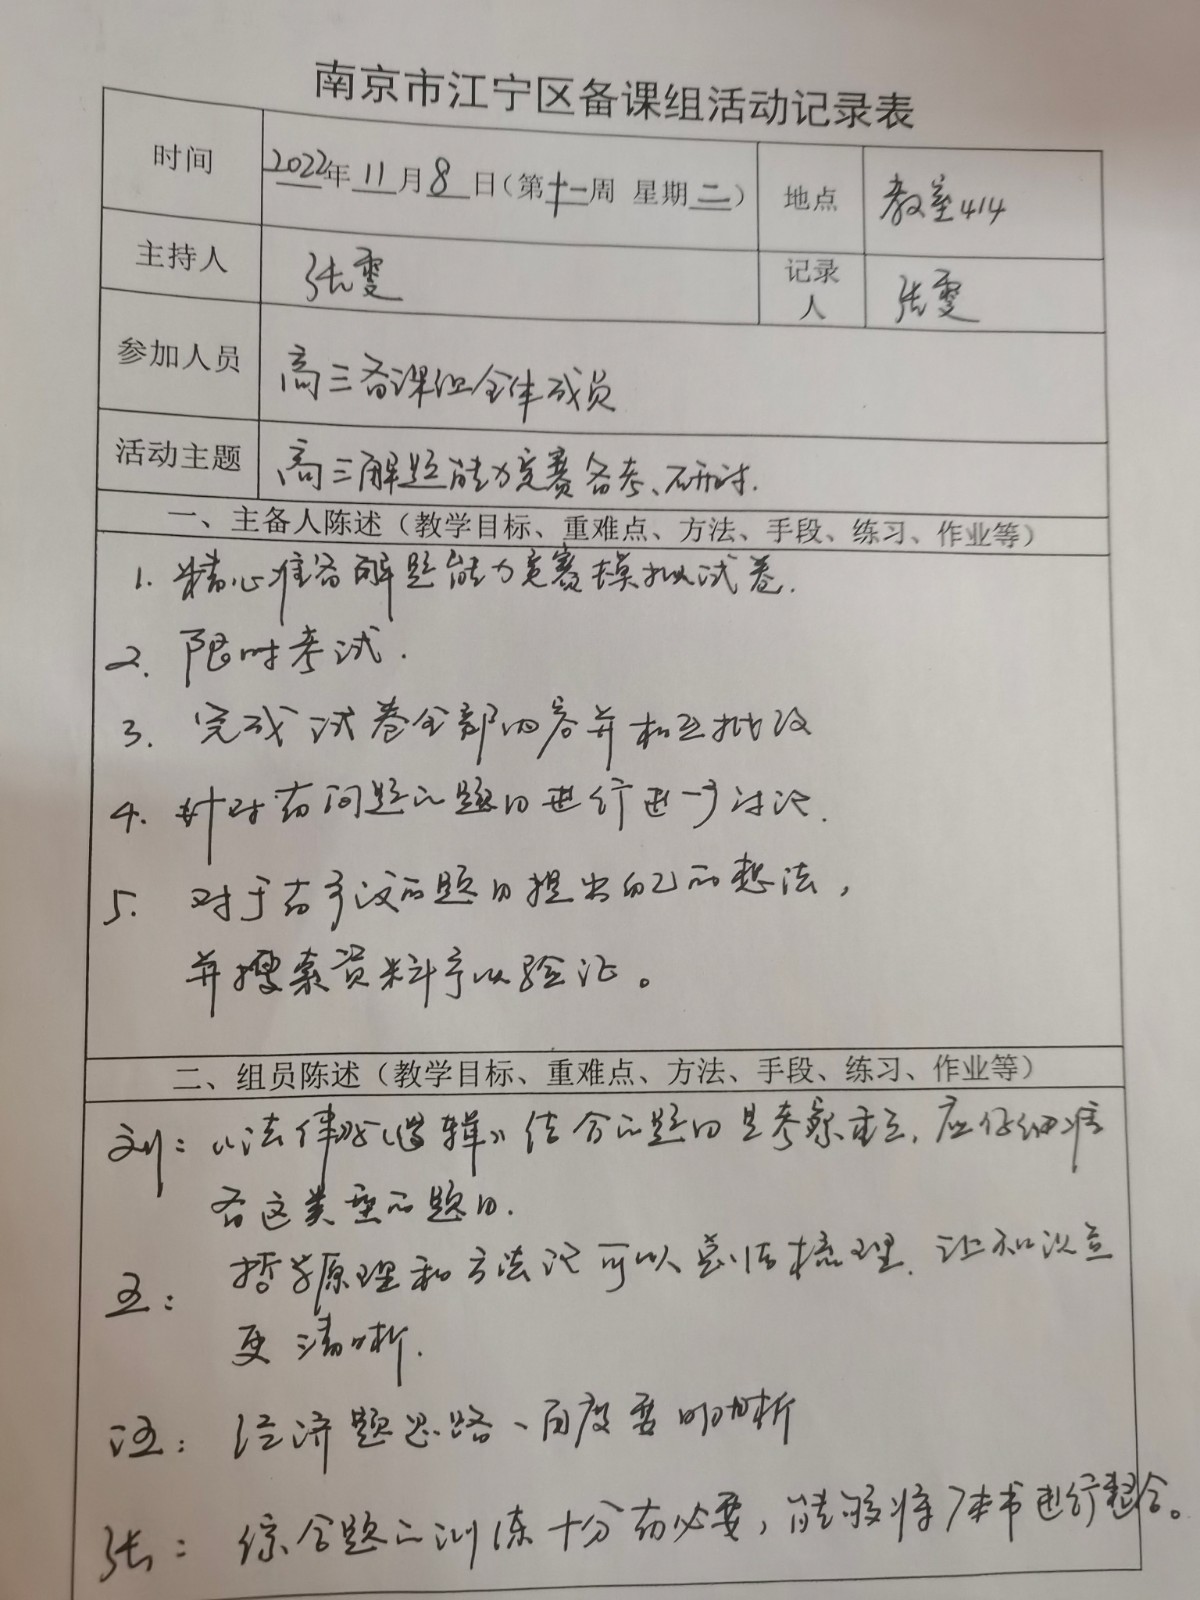 南京市江宁区备课组活动记录表
时间 2022年11月8日(第十一周 星期二) 地点 教室414
主持人 张雯 记录人 张雯
参加人员 高三备课组全体成员
活动主题 高三解题能力竞赛备考、研讨.
一、主备人陈述（教学目标、重难点、方法、手段、练习、作业等）
1. 精心准备解题能力竞赛模拟试卷.
2. 限时考试.
3. 完成试卷全部内容并相互批改
4. 针对有问题的题目进行进一步讨论.
5. 对于有争议的题目提出自己的想法，
并搜索资料予以验证。
二、组员陈述（教学目标、重难点、方法、手段、练习、作业等）
刘：《法律》《逻辑》结合的题目是考察重点，应仔细准
备这类型的题目.
王：哲学原理和方法论可以总结梳理，让知识点
更清晰.
汪：经济题思路、角度要明晰
张：综合题的训练十分有必要，能够将7本书进行整合。